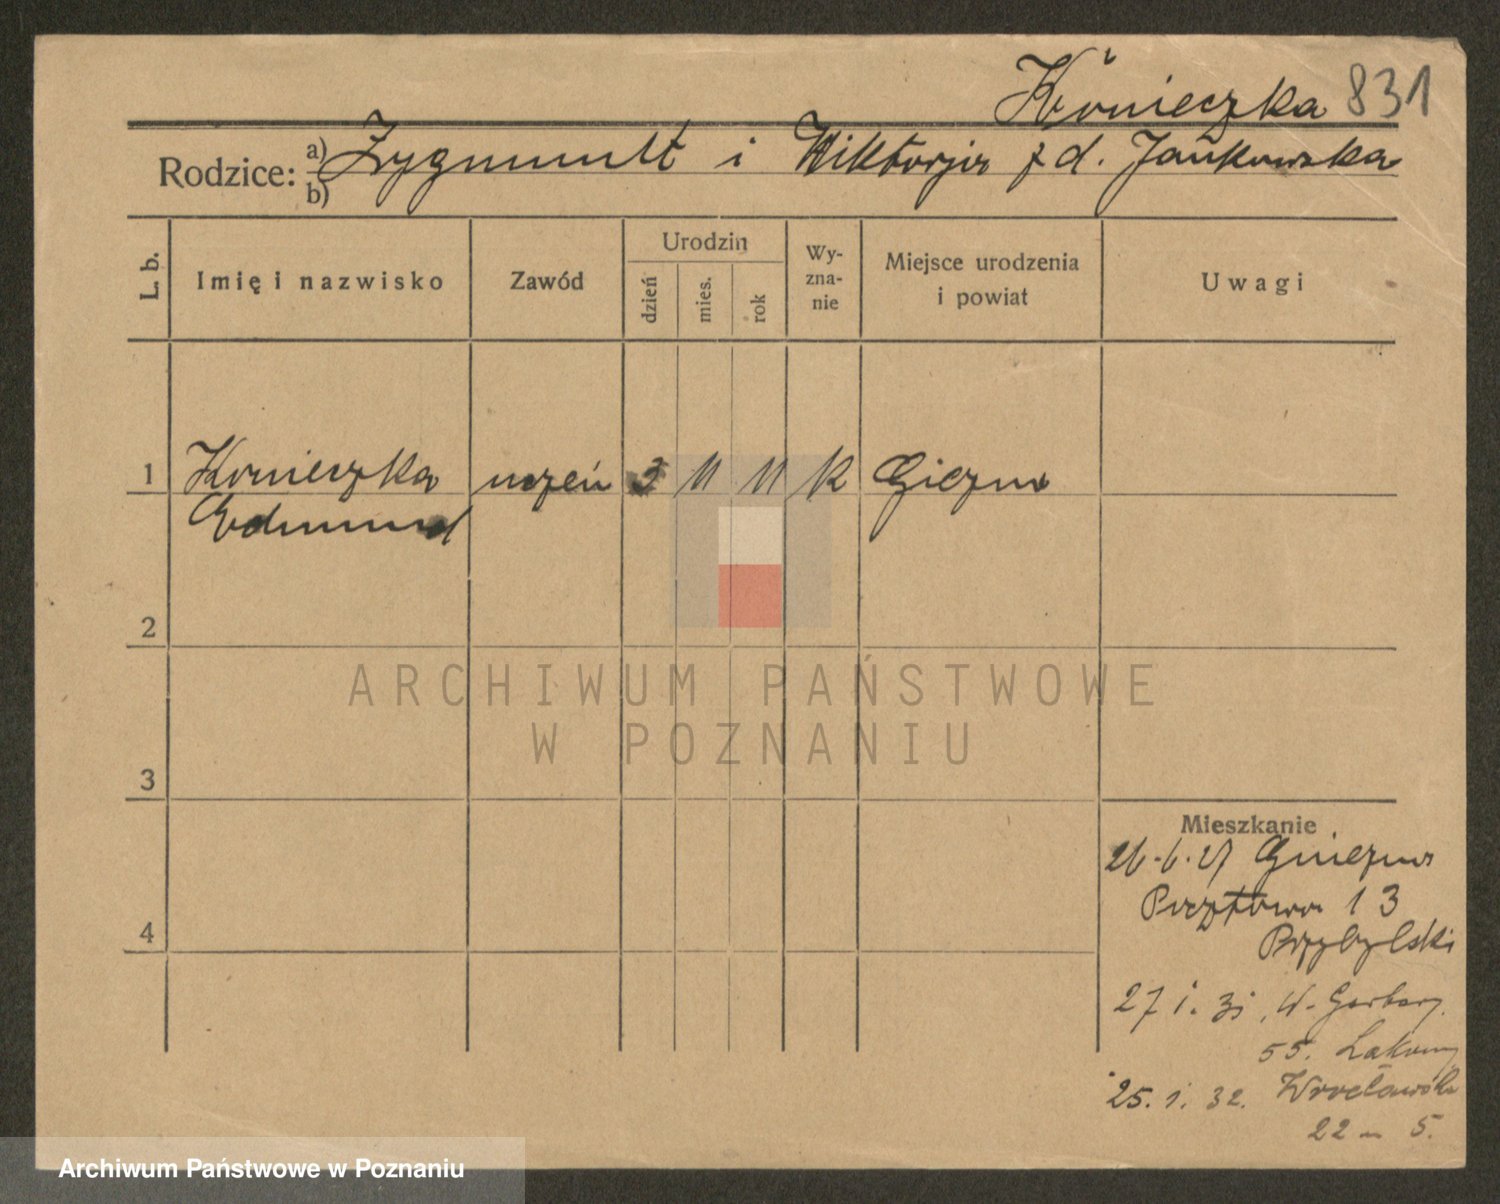 Konieczka 831
Rodzice: a) b) Zygmunt i Wiktorja z d. Jankowska
L. b.
Imię i nazwisko
Zawód
Urodzin
dzień
mies.
rok
Wy-
zna-
nie
Miejsce urodzenia
i powiat
Uwagi
1 Konieczka uczeń 3 11 11 k
Edmund
2
3
4
Mieszkanie
26.6.27 Gniezno
Pocztowa 13
Przybylski
27 1. 31. W. Garbary
55.
25. 1. 32. Wrocławska
22 - 5.
ARCHIWUM PAŃSTWOWE
W POZNANIU
Archiwum Państwowe w Poznaniu